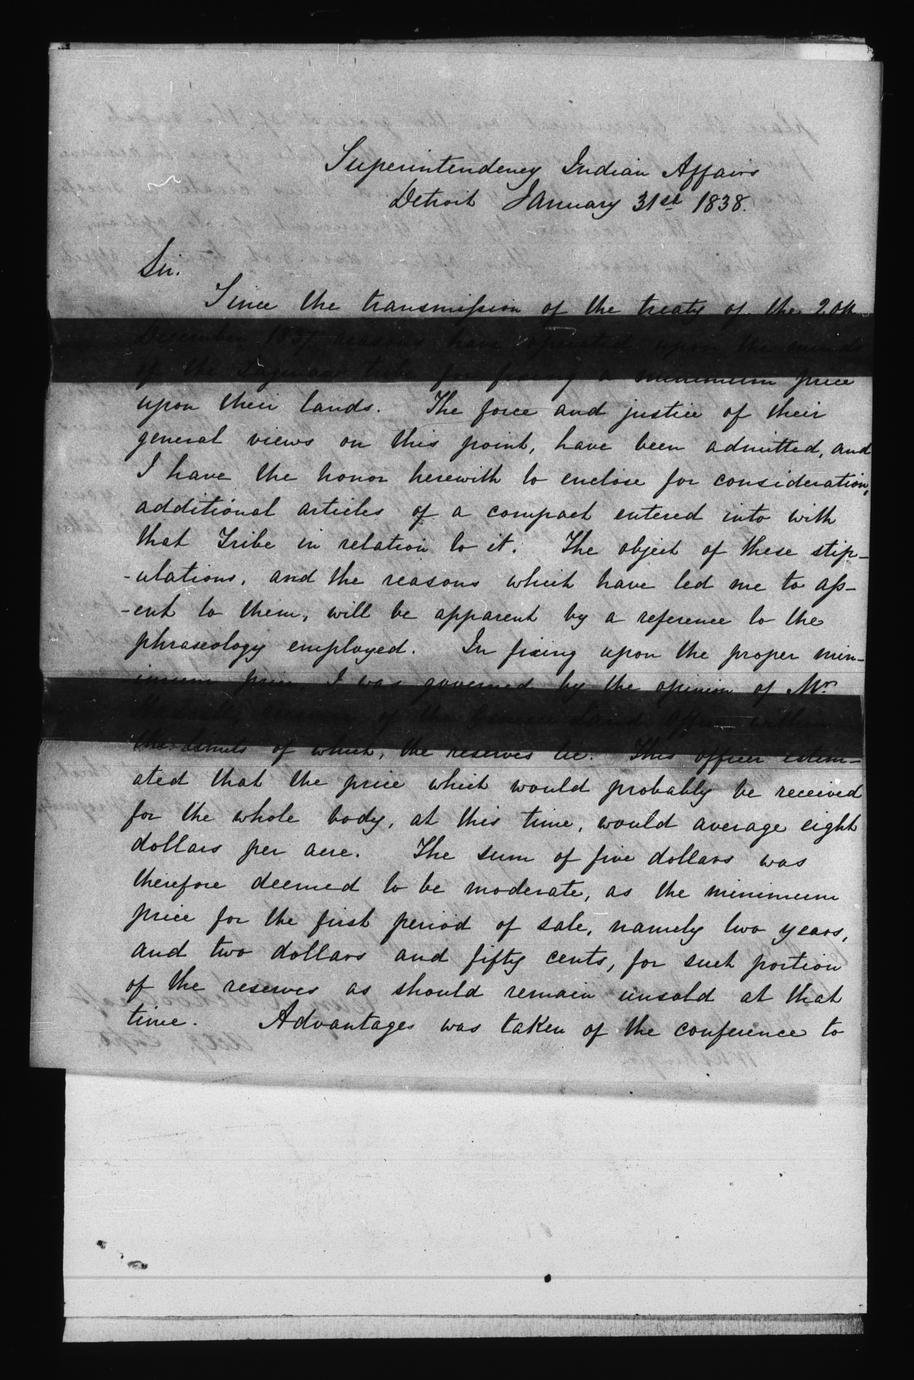 Superintendency Indian Affairs
Detroit January 31st 1838.
Sir.
Since the transmission of the treaty of the 20th
December 1837, reasons have operated upon the minds
of the Saginaw tribe for fixing a minimum price
upon their lands. The force and justice of their
general views on this point, have been admitted, and
I have the honor herewith to enclose for consideration,
additional articles of a compact entered into with
that Tribe in relation to it. The object of these stip-
-ulations, and the reasons which have led me to ass-
-ent to them, will be apparent by a reference to the
phraseology employed. In fixing upon the proper min-
imum price, I was governed by the opinion of Mr
of the Land Office within
the limits of which, the reserves lie. This officer estim-
ated that the price which would probably be received
for the whole body, at this time, would average eight
dollars per acre. The sum of five dollars was
therefore deemed to be moderate, as the minimum
price for the first period of sale, namely two years,
and two dollars and fifty cents, for such portion
of the reserves as should remain unsold at that
time. Advantages was taken of the conference to